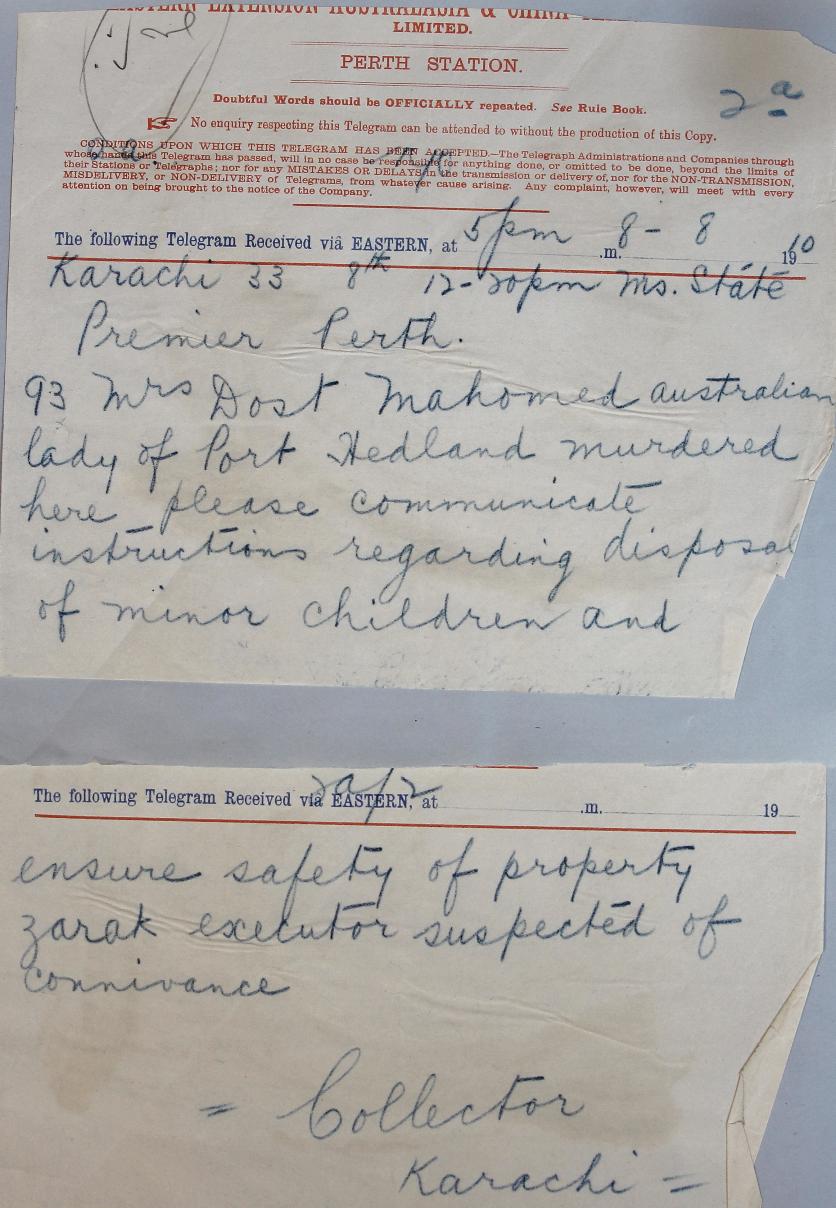 EASTERN EXTENSION AUSTRALASIA & CHINA
LIMITED.
PERTH STATION.
2a
Doubtful Words should be OFFICIALLY repeated. See Rule Book.
No enquiry respecting this Telegram can be attended to without the production of this Copy.
CONDITIONS UPON WHICH THIS TELEGRAM HAS BEEN ACCEPTED.—The Telegraph Administrations and Companies through
whose hands this Telegram has passed, will in no case be responsible for anything done, or omitted to be done, beyond the limits of
their Stations or Telegraphs; nor for any MISTAKES OR DELAYS in the transmission or delivery of, nor for the NON-TRANSMISSION,
MISDELIVERY, or NON-DELIVERY of Telegrams, from whatever cause arising. Any complaint, however, will meet with every
attention on being brought to the notice of the Company.
The following Telegram Received viâ EASTERN, at 5pm .m. 8 - 8 1910
Karachi 33 8th 12-20pm Ms. State
Premier Perth.
93 Mrs Dost Mahomed australian
lady of Port Hedland murdered
here please communicate
instructions regarding disposal
of minor children and
2a/2
The following Telegram Received viâ EASTERN, at .m. 19
ensure safety of property
zarak executor suspected of
connivance
= Collector
Karachi =